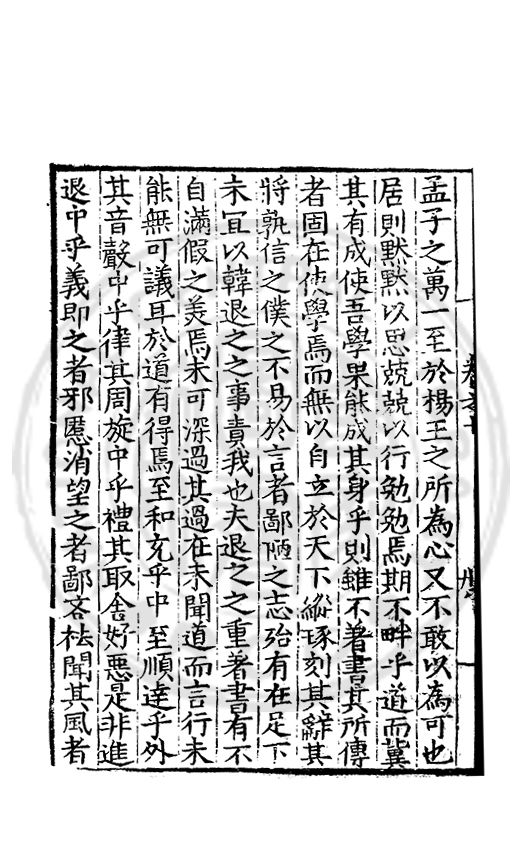 孟子之萬一至於楊王之所為心又不敢以為可也
居則黙黙以思兢兢以行勉勉焉期不畔乎道而冀
其有成使吾學果能成其身乎則雖不著書其所傳
者固在使學焉而無以自立於天下縱琢刻其辭其
將孰信之僕之不易於言者鄙陋之志殆有在足下
未冝以韓退之之事責我也夫退之之重著書有不
自滿假之美焉未可深過其過在未聞道而言行未
能無可議耳於道有得焉至和充乎中至順達乎外
其音聲中乎律其周旋中乎禮其取舍好惡是非進
退中乎義即之者邪慝消望之者鄙吝祛聞其風者